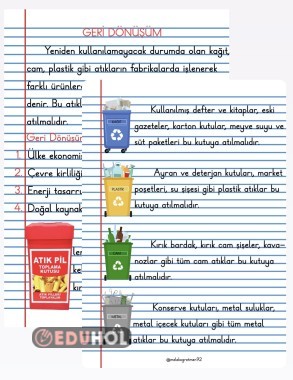 GERİ DÖNÜŞÜM
Yeniden kullanılamayacak durumda olan kağıt,
cam, plastik gibi atıkların fabrikalarda işlenerek
farklı
denir. Bu
atılmalıdır.
Geri
1. Ülke
2. Çevre
3. Enerji
4. Doğal
ATIK PİL
TOPLAMA
KUTUSU
EDUHOL
Kullanılmış defter ve kitaplar, eski
gazeteler, karton kutular, meyve suyu ve
süt paketleri bu kutuya atılmalıdır.
PLASTİK
Ayran ve deterjan kutuları, market
poşetleri, su şişesi gibi plastik atıklar bu
kutuya atılmalıdır.
Kırık bardak, kırık cam şişeler, kava-
nozlar gibi tüm cam atıklar bu kutuya
atılmalıdır.
Konserve kutuları, metal suluklar,
metal içecek kutuları gibi tüm metal
atıklar bu kutuya atılmalıdır.